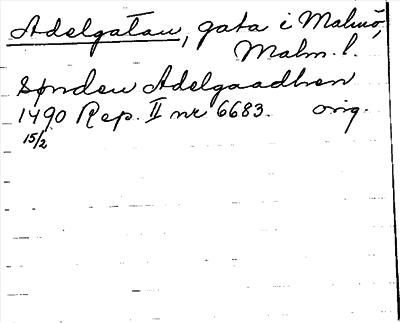 Adelgatan, gata i Malmö,
Malm. l.
Sønden Adelgaadhen
1490 Rep. II nr 6683. orig.
15/2